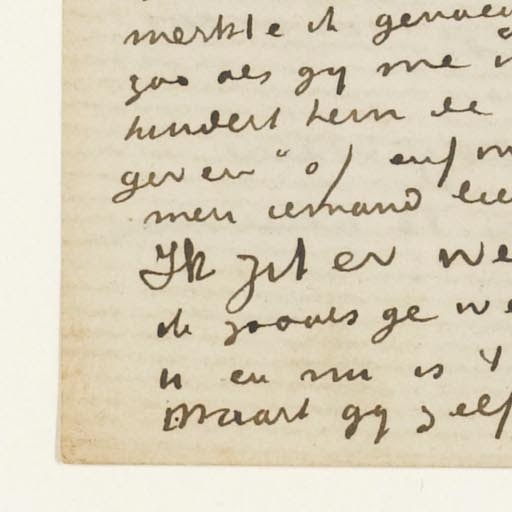 merkte ik genoeg
zoo als gy me
hindert hem de
geven" of enf
men iemand lie
Ik zit er we
ik zooals ge we
u en nu is 't
Maart gy zelf